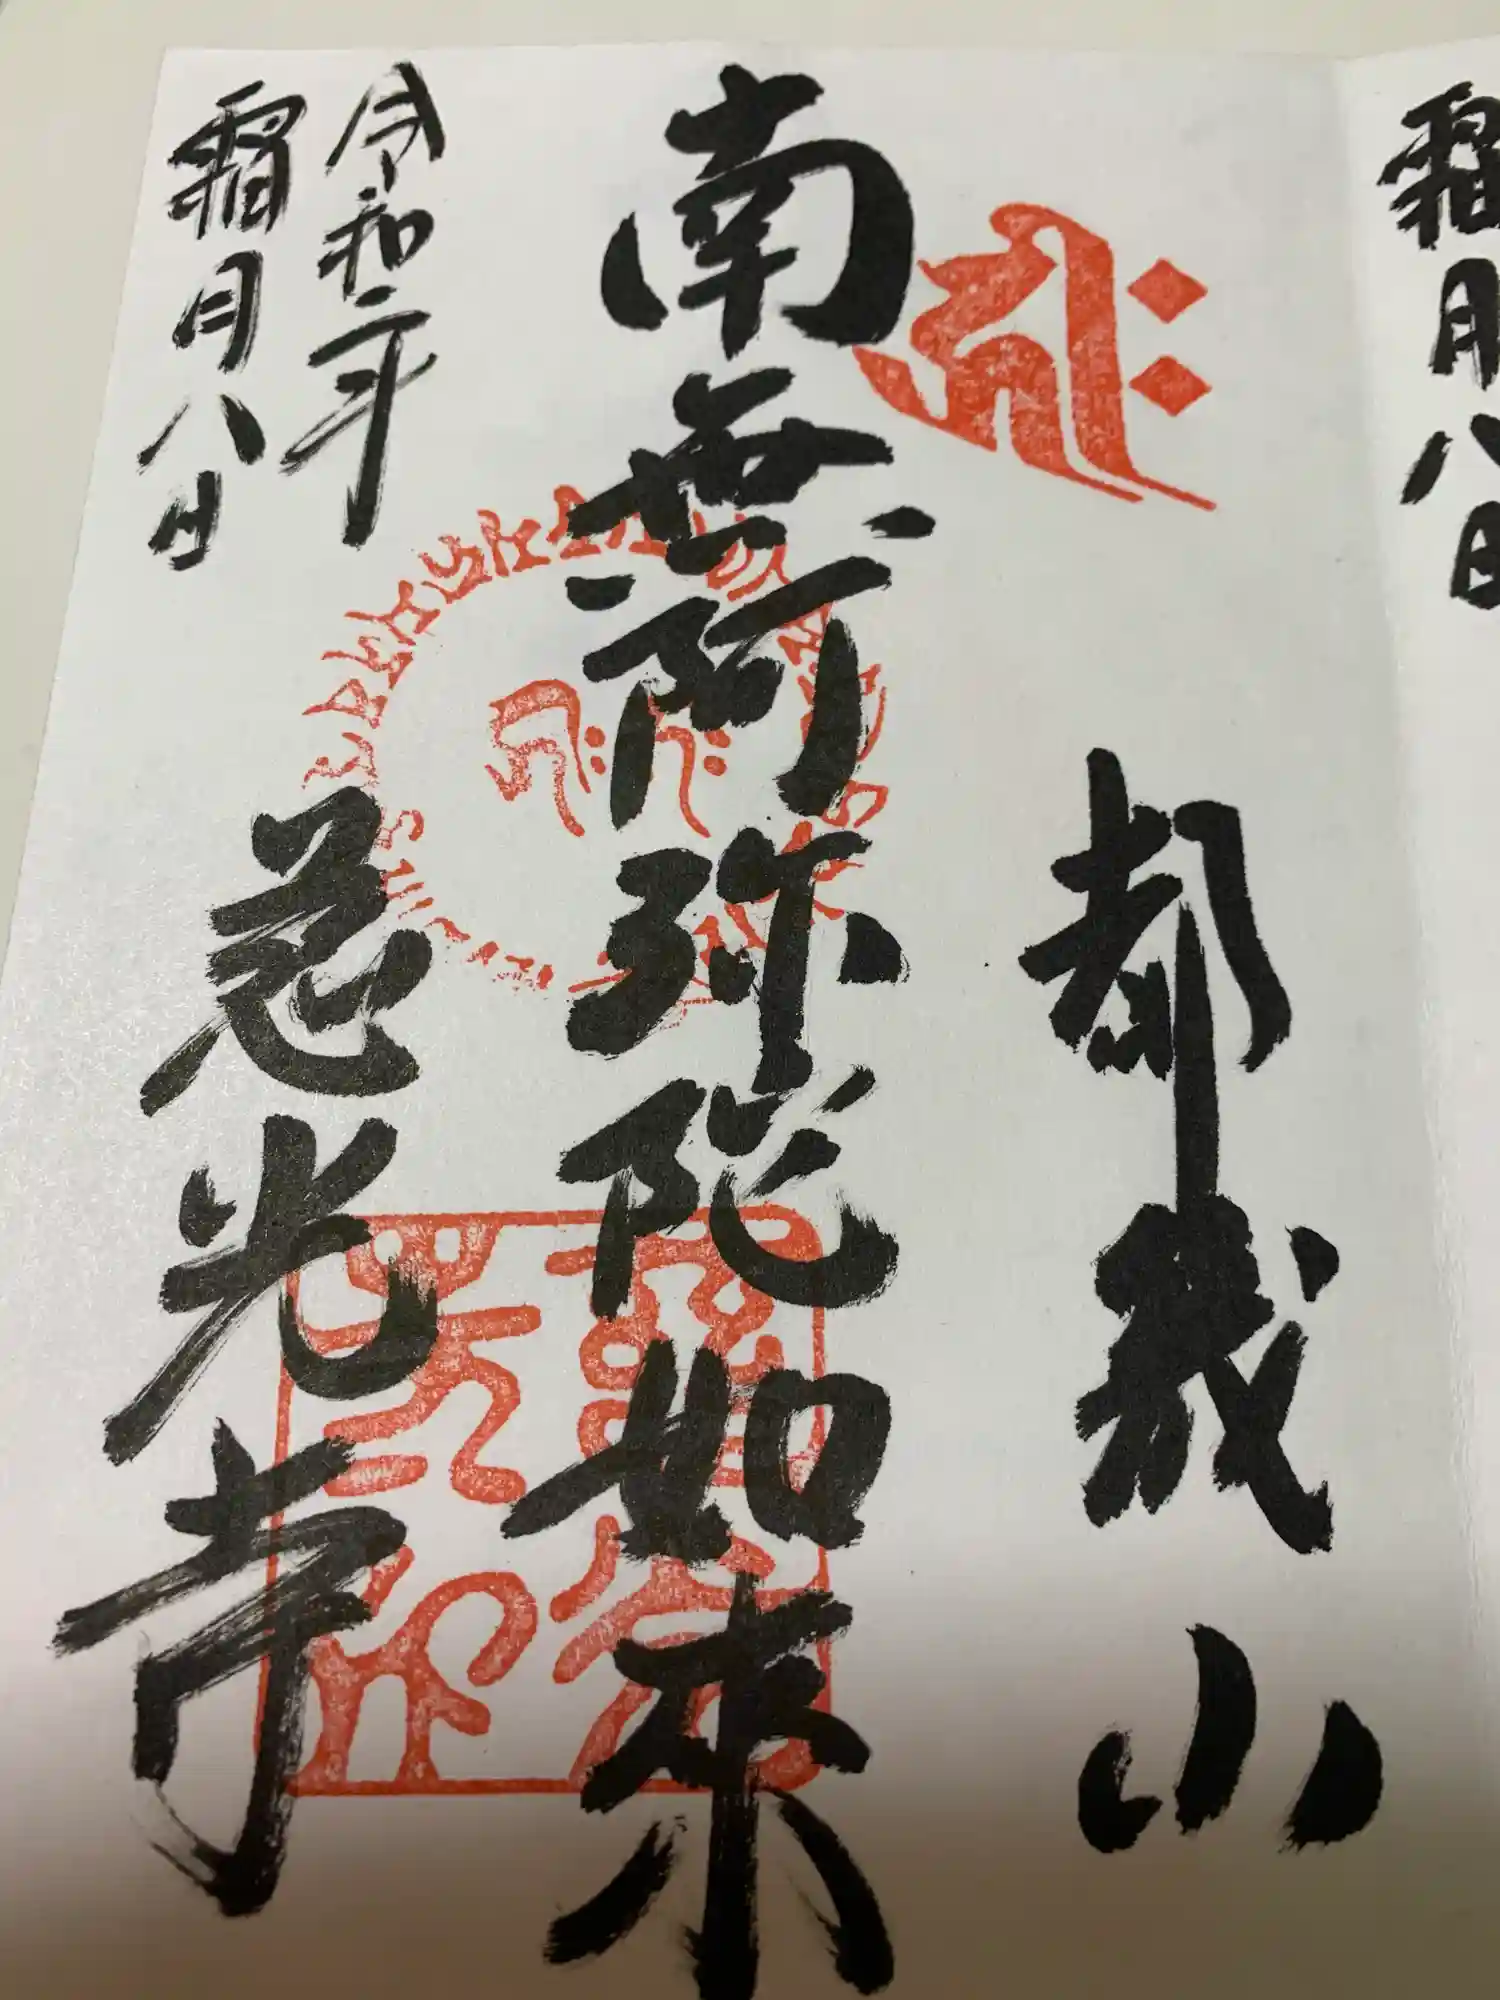 都幾山
南無阿弥陀如来
慈光寺
令和二年
霜月八日
霜月八日